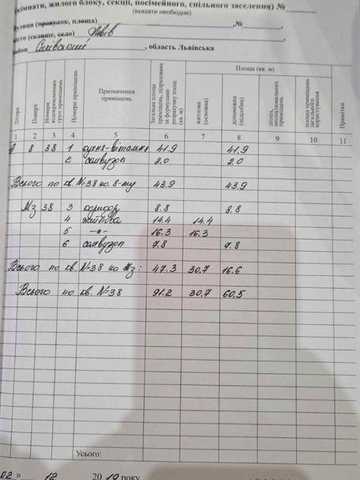 (кімнати, жилого блоку, секції, посімейного, спільного заселення) №
(вказати необхідне)
вулиця (провулок, площа) , №
місто (селище, село) Львів
район , область Львівська
Площа (кв. м)
Літера
Поверх
Номери
Номери приміщень
Призначення приміщень
житлова (основна)
Примітки
1 2 3 4 5 6 7 8 9 10 11
8 38 1 кухня-вітальня 41.9 41.9
2 санвузол 2.0 2.0
Всього по кв. №38 по 8-му 43.9 43.9
Мз 38 3 коридор 8.8 8.8
4 житлова 14.4 14.4
5 -"- 16.3 16.3
6 санвузол 7.8 7.8
Всього по кв. №38 по Мз: 47.3 30.7 16.6
Всього по кв. №38 91.2 30.7 60.5
Усього:
02 » 12 20 року